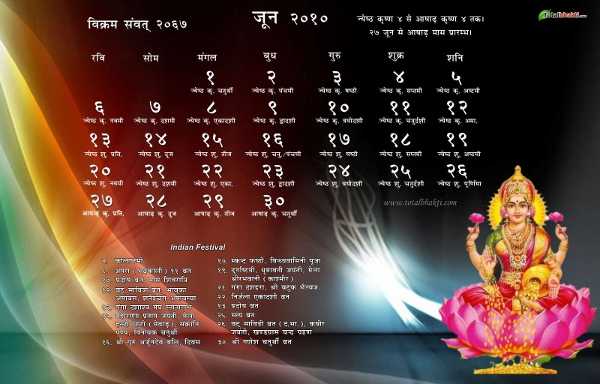 विक्रम संवत् २०६७
जून २०१०
ज्येष्ठ कृष्ण ४ से आषाढ़ कृष्ण ४ तक।
२७ जून से आषाढ़ मास प्रारम्भ।
Totalbhakti.com
रवि सोम मंगल बुध गुरु शुक्र शनि
१ २ ३ ४ ५
ज्येष्ठ कृ. चतुर्थी ज्येष्ठ कृ. पंचमी ज्येष्ठ कृ. षष्ठी ज्येष्ठ कृ. सप्तमी ज्येष्ठ कृ. अष्टमी
६ ७ ८ ९ १० ११ १२
ज्येष्ठ कृ. नवमी ज्येष्ठ कृ. दशमी ज्येष्ठ कृ. एकादशी ज्येष्ठ कृ. द्वादशी ज्येष्ठ कृ. त्रयोदशी ज्येष्ठ कृ. चतुर्दशी ज्येष्ठ कृ. अमा.
१३ १४ १५ १६ १७ १८ १९
ज्येष्ठ शु. प्रति. ज्येष्ठ शु. दूज ज्येष्ठ शु. तीज ज्येष्ठ शु. चतु./पंचमी ज्येष्ठ शु. षष्ठी ज्येष्ठ शु. सप्तमी ज्येष्ठ शु. अष्टमी
२० २१ २२ २३ २४ २५ २६
ज्येष्ठ शु. नवमी ज्येष्ठ शु. दशमी ज्येष्ठ शु. एका. ज्येष्ठ शु. द्वादशी ज्येष्ठ शु. त्रयोदशी ज्येष्ठ शु. चतुर्दशी ज्येष्ठ शु. पूर्णिमा
२७ २८ २९ ३०
आषाढ़ कृ. प्रति. आषाढ़ कृ. दूज आषाढ़ कृ. तीज आषाढ़ कृ. चतुर्थी
www.totalbhakti.com
Indian Festival
कालाष्टमी
८. अपरा (भद्रकाली) ११ व्रत
१०. प्रदोष व्रत, मास शिवरात्रि
१२. वट सावित्री व्रत, भावुका
अमावस, शनैश्चरी अमावस्या
१६. श्री गुरु अर्जुनदेव बलि. दिवस
१९. दुर्गाष्टमी, धूमावती जयंती, मेला
क्षीरभवानी (काश्मीर)
२१. गंगा दशहरा, श्री बटुक भैरवज
२२. निर्जला एकादशी व्रत
२३. प्रदोष व्रत
२५. सत्य व्रत
२६. वट सावित्री व्रत (द.भा.), कबीर
जयंती, खण्डग्रास चन्द्र ग्रहण
३०. श्री गणेश चतुर्थी व्रत